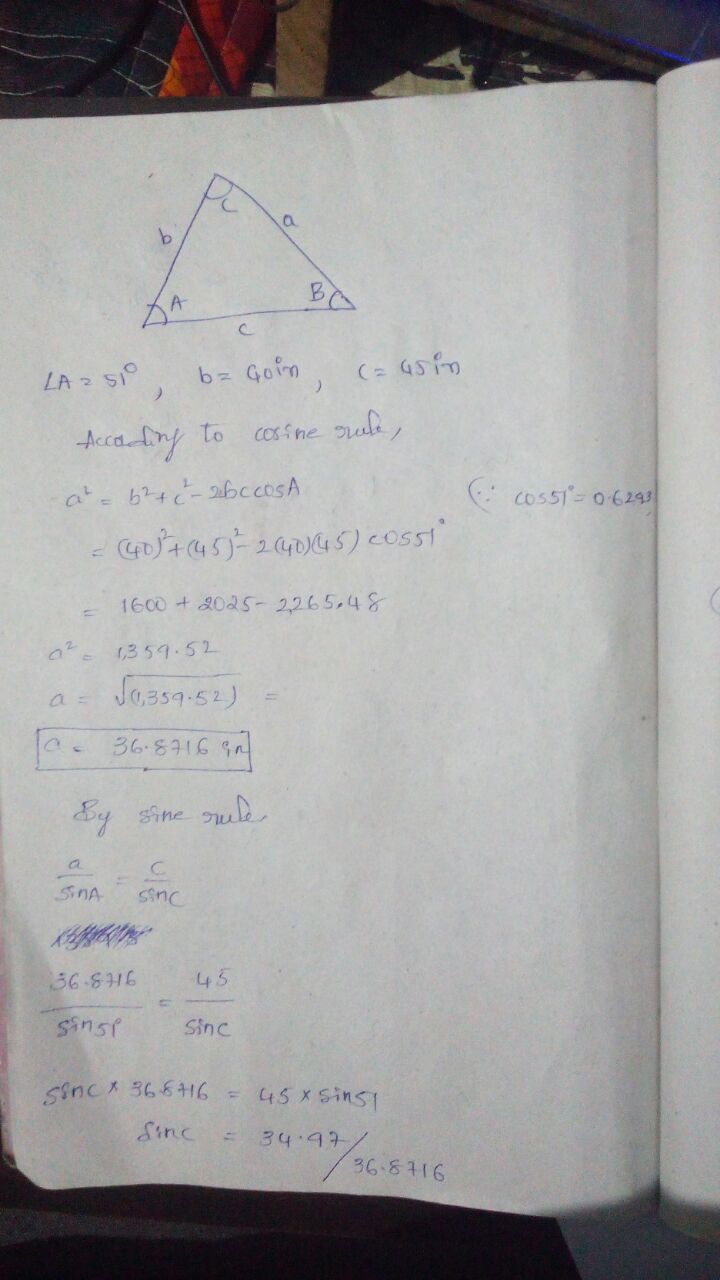 C
b
a
A
B
c
∠A = 51°, b = 40in, c = 45in
According to cosine rule,
a² = b² + c² - 2bc cosA (∵ cos51° = 0.6293
= (40)² + (45)² - 2(40)(45) cos51°
= 1600 + 2025 - 2265.48
a² = 1,359.52
a = √(1,359.52) =
a = 36.8716 in
By sine rule
a/sinA = c/sinC
36.8716/sin51 = 45/sinC
sinC × 36.8716 = 45 × sin51
sinC = 34.97/36.8716